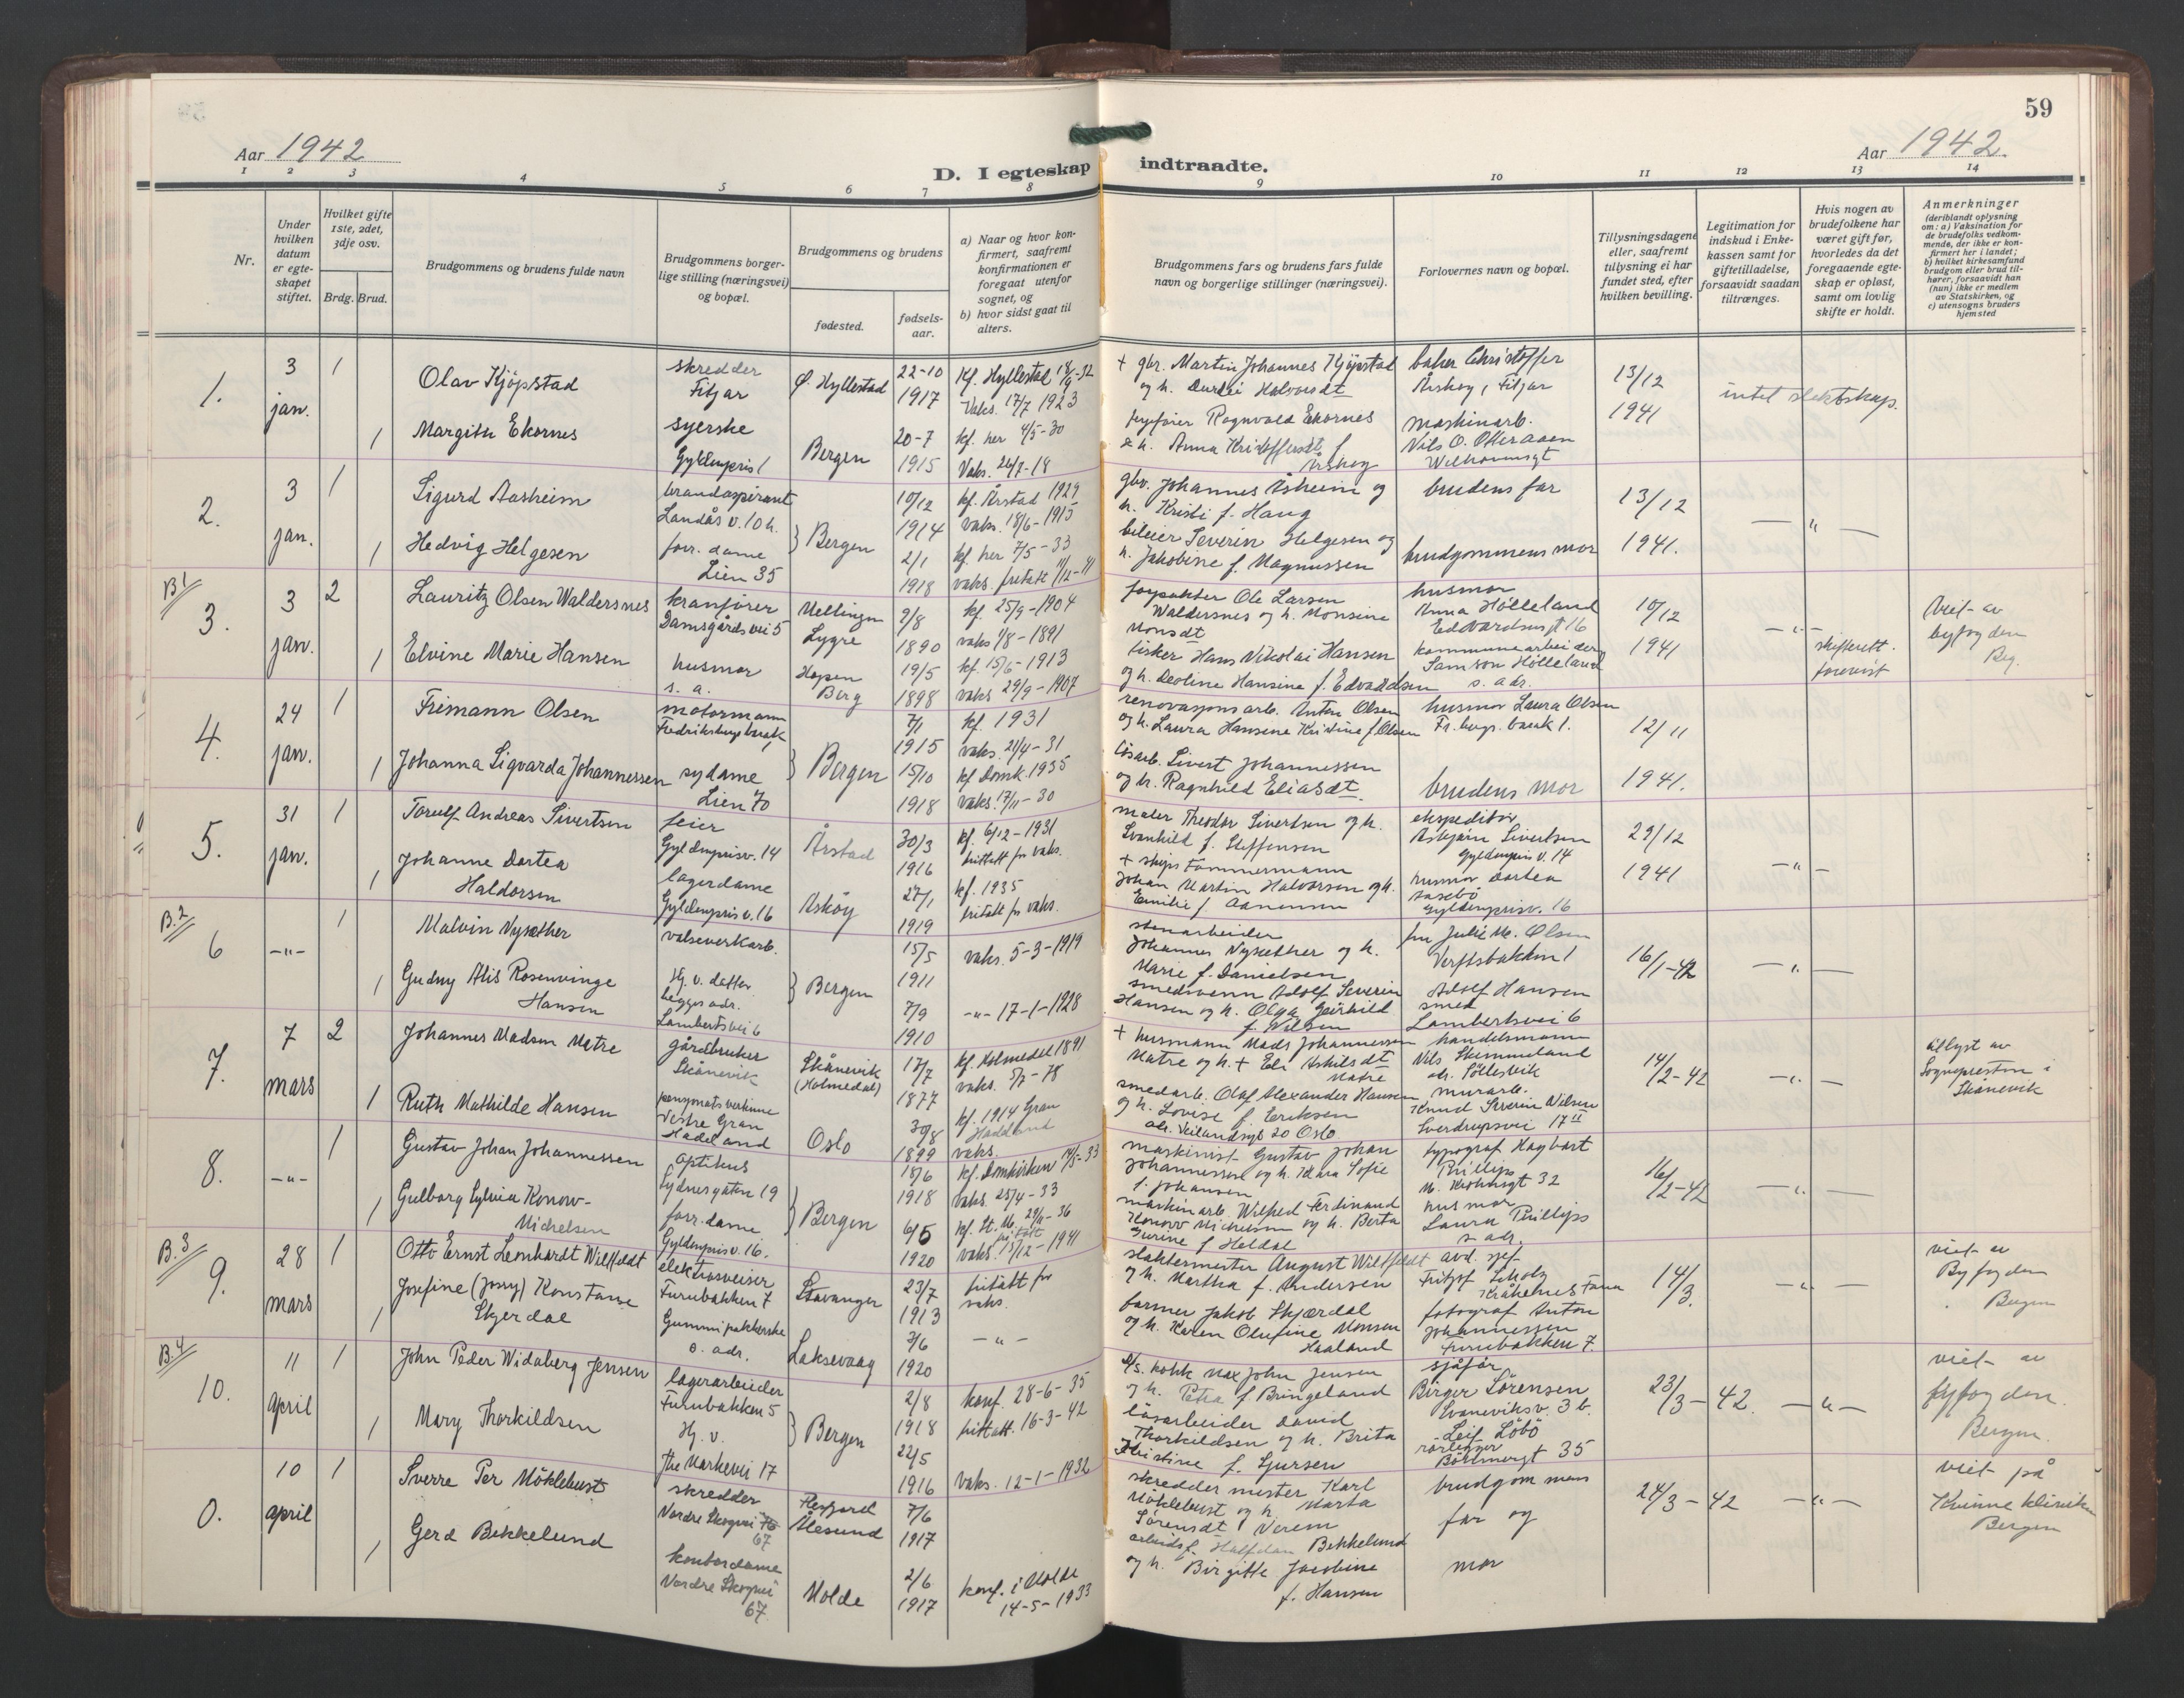 59
Aar 1942
D. I egteskap indtraadte.
Aar 1942.
1 2 3 4 5 6 7 8 9 10 11 12 13 14
Nr.
Under hvilken datum er egteskapet stiftet.
Hvilket gifte 1ste, 2det, 3dje osv.
Brdg. Brud.
Brudgommens og brudens fulde navn
Brudgommens borgerlige stilling (næringsvei) og bopæl.
Brudgommens og brudens
fødested.
fødselsaar.
a) Naar og hvor konfirmert, saafremt konfirmationen er foregaat utenfor sognet, og
b) hvor sidst gaat til alters.
Brudgommens fars og brudens fars fulde navn og borgerlige stillinger (næringsvei).
Forlovernes navn og bopæl.
Tillysningsdagene eller, saafremt tillysning ei har fundet sted, efter hvilken bevilling.
Legitimation for indskud i Enkekassen samt for giftetilladelse, forsaavidt saadan tiltrænges.
Hvis nogen av brudefolkene har været gift før, hvorledes da det foregaaende egteskap er opløst, samt om lovlig skifte er holdt.
Anmerkninger
(deriblandt oplysning om: a) Vaksination for de brudefolks vedkommende, der ikke er konfirmert her i landet; b) hvilket kirkesamfund brudgom eller brud tilhører, forsaavidt han (hun) ikke er medlem av Statskirken, og c) utensogns bruders hjemsted
1.
3 jan.
1
Olav Kjöpstad
skredder
Fitjar
Ø. Hyllestad
22-10
1917
Kf. Hyllestad 18/9-32
Vaks. 17/7 1923
+ gbr. Martin Johannes Kjöpstad
og h.
baker Christoffer
Årskog, Fitjar
13/12
1941
intet slektskap.
1
Margith Ekornes
syerske
Gyldenpris 1
Bergen
20-7
1915
kf. her 4/5-30
Vaks. 26/2-18
Ragnvald Ekornes
& h. Anna
Årskog
maskinarb.
Nils O. Otteraaen
2.
3 jan.
1
Sigurd Aasheim
brandaspirant
Landås v. 10 h.
Bergen
10/12
1914
kf. Årstad 1929
vaks. 18/6-1915
gbr. Johannes Åsheim og
h. Kristi f. Haug
brudens far
13/12
1941.
— " —
1
Hedvig Helgesen
forr. dame
Lien 35
2/1
1918
kf. her 7/5-33
vaks. fritatt 11/12-41
bileier Severin Helgesen og
h. Jakobine f. Magnussen
brudgommens mor
B1
3.
3 jan.
2
Lauritz Olsen Waldersnes
kranfører
Damsgårdsvei 5
Lygre
9/8
1890
kf. 25/9-1904
vaks 1/8-1891
forpakter Ole Larsen
Waldersnes og h. Monsine
Monsdt
husmor
Anna Hölleland
Edvardsensgt 16
10/12
1941
— " —
skifterett.
forevist
Viet av
byfogden
Brg.
1
Elvine Marie Hansen
husmor
s. a.
Hopen
Berg
19/5
1898
kf. 15/6-1913
vaks 29/9-1907
fisker Hans Nikolai Hansen
og h. Deoline Hansine f. Edvardsen
kommunearbeider
Samson Hölleland
s. adr.
4.
24 jan.
1
Frimann Olsen
motormann
Fredriksbergbarak 1
Bergen
7/1
1915
kf. 1931
vaks. 21/4-31
renovasjonsarb. Anton Olsen
og h. Laura Hansene Kristine f. Olsen
husmor Laura Olsen
Fr. bergs. barak 1.
12/11
1941.
1
Johanna Sigvarda Johannessen
sydame
Lien 70
15/10
1918
kf Domk. 1935
vaks. 17/11-30
lösarb. Sivert Johannessen
og h. Ragnhild Eliasdt.
brudens mor
5.
31 jan.
1
Torulf Andreas Sivertsen
feier
Gyldenprisv. 14
Årstad
30/3
1916
kf. 6/12-1931
fritatt for vaks.
maler Theodor Sivertsen og h.
Svanhild f. Steffensen
ekspeditør
Asbjørn Sivertsen
Gyldenpris v. 14
29/12
1941
— " —
1
Johanne Dortea
Haldorsen
lagerdame
Gyldenprisv. 16
Askøy
27/1
1919
kf. 1935
fritatt for vaks.
+ skips Tømmermann
Johan Martin Halvorsen og h.
Emilie f. Aanensen
husmor Dortea
Gyldenprisv. 16
B.2
6
—"—
1
Malvin Nysæther
valseverkarb.
Bergen
15/5
1911
vaks. 5-3-1919
stenarbeider
Johannes Nysæther og h.
Marie f. Danielsen
fru Julie M. Olsen
Verftsbakken 1
16/1-42
— " —
1
Gudny Alis Rosenvinge
Hansen
Hj. v. datter
begges adr.
Lambertsvei 6
7/9
1910
-"- 17-1-1928
smedsvenn Adolf Severin
Hansen og h. Olga Geirhild
f. Nilsen
Adolf Hansen
smed
Lambertsvei 6
7.
7 mars
2
Johannes Madsen Matre
gårdbruker
Skånevik
Skånevik
(Holmedal)
17/7
1877
kf. Holmedal 1891
vaks. 5/7-78
+ husmann Mads Johannessen
Matre og h. + Eli Askilsdt
Matre
handelsmann
Nils Skimmeland
14/2-42
— " —
tillyst av
Sognepresten i
Skånevik
1
Ruth Mathilde Hansen
pensjonatsvertinne
Vestre Gran
Hadeland
Oslo
30/8
1899
kf. 1914 Gran
Hadeland
vaks.
smedarb. Olaf Alexander Hansen
og h. Lovise f. Eriksen
murarb.
Knud Severin Nilsen
Sverdrupsvei 17 II
8.
—"—
1
Gustav Johan Johannessen
optikus
Sydnesgaten 19
Bergen
18/6
1918
kf. Domkirken 14/5-33
vaks. 25/4-33
maskinist Gustav Johan
Johannessen og h. Klara Sofie
f. Johansen
typograf Hagbart
Phillips
M. Krohnsgt 32
16/2-42
— " —
1
Gulborg Sylvia Konow-
Michelsen
forr. dame
Gyldenpris v. 16.
6/5
1920
kf. St. M. 29/11-36
fritatt
vaks. 15/12-1941
maskinarb. Wilfred Ferdinand
Konow Michelsen og h. Berta
Gurine f Heldal
husmor
Laura Phillips
s. adr.
B.3
9.
28 mars
1
Otto Ernst Leonhardt Willfeldt
elektrosveiser
Furubakken 7
Stavanger
23/7
1913
fritatt for
vaks.
slaktermester August Willfeldt
og h. Martha f. Andersen
avd. sjef
Fritjof Scholz
Kråkenes Fana
14/3.
— " —
viet av
Byfogden
Bergen
1
Josefine (Jossy) Konstanse
Skjerdal
Gummipakkerske
s. adr.
Laksevaag
7/6
1920
— " —
farmer Jakob Skjærdal
og h. Karen Olufine Monsen
Haaland
fotograf Anton
Johannessen
Furubakken 7
B.4
10.
11 April
1
John Peder Widsberg Jensen
lagerarbeider
Furubakken 5
Bergen
2/8
1918
konf. 28-6-35
fritatt. 16-3-42
d/s. kokk Max John Jensen
og h. Petra f Bringeland
sjåfør
Birger Sörensen
Svaneviksv. 3 b.
23/3-42.
— " —
viet av
byfogden
Bergen.
1
Mary Thorkildsen
Hj. v.
Markevei 17
22/5
1916
vaks. 12-1-1932
lösarbeider David
Thorkildsen og h. Brita
Kristine f. Sjursen
Leif Löbö
rørlegger
35
0.
10 april
1
Sverre Per Möklebust
skredder
Nordre Skogvei 76
67
Ålesund
7/6
1917
skredder mester Karl
Möklebust og h. Marta
Sörensdt Verem
brudgommens
far og
mor
24/3-42
— " —
viet på
Kvinneklinikken
Bergen
1
Gerd Bekkelund
kontordame
Nordre Skogvei
67
Molde
2/6
1917
konf. i Molde
14-5-1933
arbeids f. Halfdan Bekkelund
og h. Birgitte Jacobine
f. Hansen